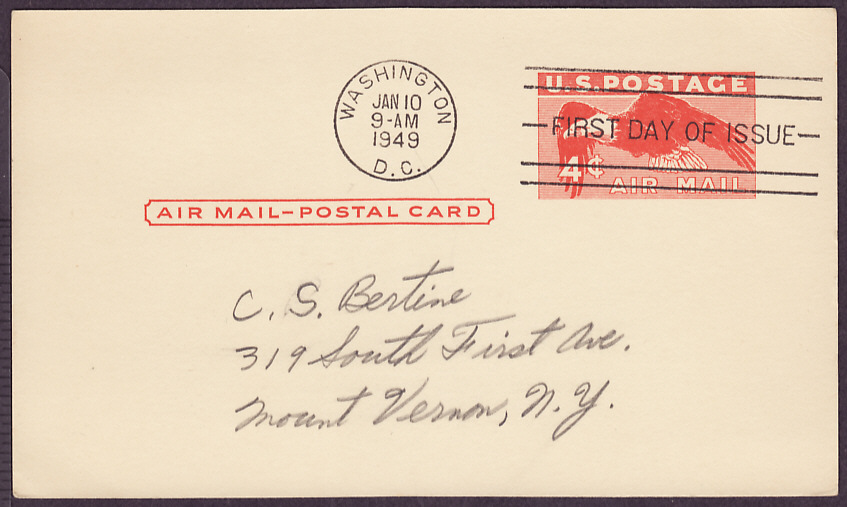 WASHINGTON
JAN 10
9-AM
1949
D.C.
U.S. POSTAGE
FIRST DAY OF ISSUE
4¢
AIR MAIL
AIR MAIL-POSTAL CARD
C. S. Bertine
319 South First Ave.
Mount Vernon, N.Y.